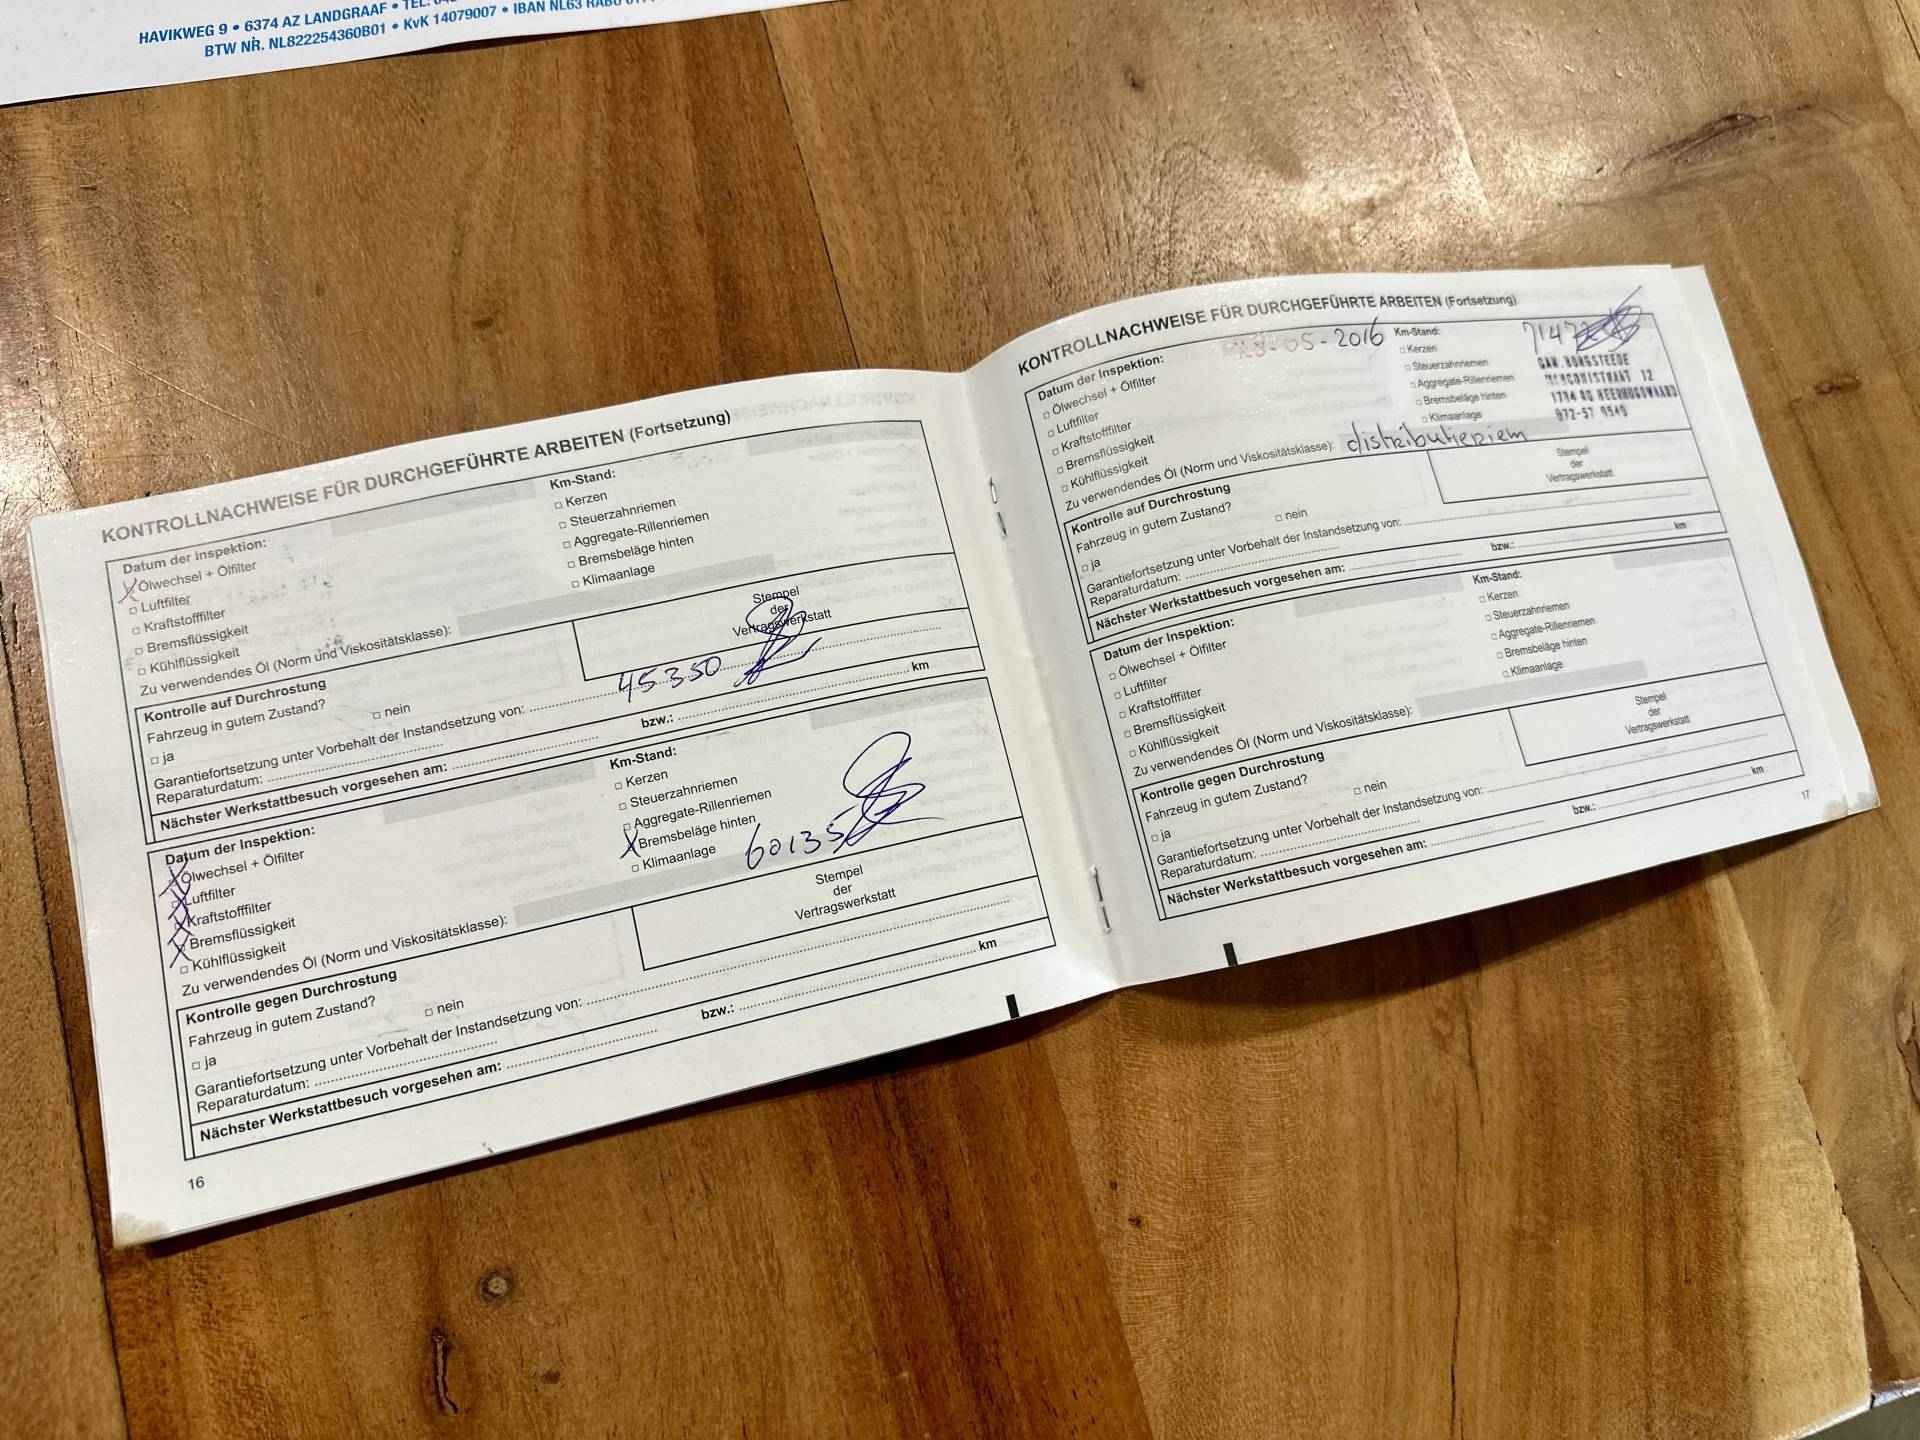 HAVIKWEG 9 • 6374 AZ LANDGRAAF • TEL:
BTW NR. NL822254360B01 • KvK 14079007 • IBAN NL63 RABO
KONTROLLNACHWEISE FÜR DURCHGEFÜHRTE ARBEITEN (Fortsetzung)
Datum der Inspektion:
Km-Stand:
Ölwechsel + Ölfilter
Kerzen
Luftfilter
Steuerzahnriemen
Kraftstofffilter
Aggregate-Rillenriemen
Bremsflüssigkeit
Bremsbeläge hinten
Kühlflüssigkeit
Klimaanlage
Zu verwendendes Öl (Norm und Viskositätsklasse):
Kontrolle auf Durchrostung
Stempel
der
Vertragswerkstatt
Fahrzeug in gutem Zustand?
ja
nein
45350
Garantiefortsetzung unter Vorbehalt der Instandsetzung von:
Reparaturdatum:
Nächster Werkstattbesuch vorgesehen am:
bzw.:
km
Datum der Inspektion:
Km-Stand:
Ölwechsel + Ölfilter
Kerzen
Luftfilter
Steuerzahnriemen
Kraftstofffilter
Aggregate-Rillenriemen
Bremsflüssigkeit
Bremsbeläge hinten
Kühlflüssigkeit
Klimaanlage
60135
Zu verwendendes Öl (Norm und Viskositätsklasse):
Kontrolle gegen Durchrostung
Stempel
der
Vertragswerkstatt
Fahrzeug in gutem Zustand?
ja
nein
Garantiefortsetzung unter Vorbehalt der Instandsetzung von:
Reparaturdatum:
Nächster Werkstattbesuch vorgesehen am:
bzw.:
km
16
KONTROLLNACHWEISE FÜR DURCHGEFÜHRTE ARBEITEN (Fortsetzung)
Datum der Inspektion:
05-2016
Km-Stand:
Ölwechsel + Ölfilter
Kerzen
Luftfilter
Steuerzahnriemen
Kraftstofffilter
Aggregate-Rillenriemen
Bremsflüssigkeit
Bremsbeläge hinten
Kühlflüssigkeit
Klimaanlage
12
072-57
Zu verwendendes Öl (Norm und Viskositätsklasse): distributieriem
Kontrolle auf Durchrostung
Stempel
der
Vertragswerkstatt
Fahrzeug in gutem Zustand?
ja
nein
Garantiefortsetzung unter Vorbehalt der Instandsetzung von:
Reparaturdatum:
Nächster Werkstattbesuch vorgesehen am:
bzw.:
km
Datum der Inspektion:
Km-Stand:
Ölwechsel + Ölfilter
Kerzen
Luftfilter
Steuerzahnriemen
Kraftstofffilter
Aggregate-Rillenriemen
Bremsflüssigkeit
Bremsbeläge hinten
Kühlflüssigkeit
Klimaanlage
Zu verwendendes Öl (Norm und Viskositätsklasse):
Kontrolle gegen Durchrostung
Stempel
der
Vertragswerkstatt
Fahrzeug in gutem Zustand?
ja
nein
Garantiefortsetzung unter Vorbehalt der Instandsetzung von:
Reparaturdatum:
Nächster Werkstattbesuch vorgesehen am:
bzw.:
km
17